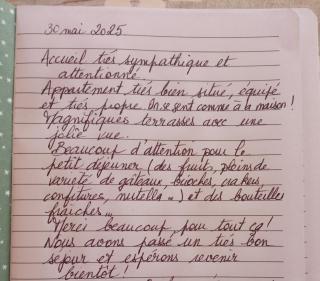 30 mai 2025
Accueil très sympathique et
attentionné.
Appartement très bien situé, équipé
et très propre. On se sent comme à la maison !
Magnifiques terrasses avec une
jolie vue.
Beaucoup d'attention pour le
petit déjeuner (des fruits, pleins de
variété de gâteaux, brioches, crakers,
confitures, nutella...) et des bouteilles
fraîches...
Merci beaucoup pour tout ça !
Nous avons passé un très bon
sejour et espérons revenir
bientôt !